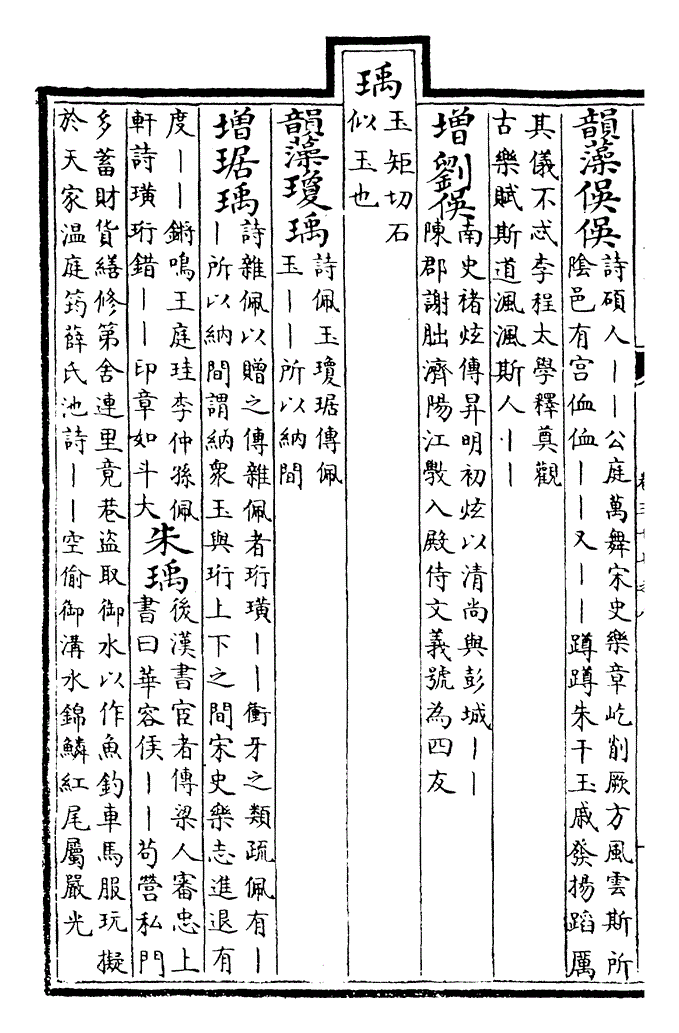 韻藻俁俁
詩碩人丨丨公庭萬舞宋史樂章屹削厥方風雲斯所
隂邑有宫侐侐丨丨又丨丨蹲蹲朱干玉戚發揚蹈厲
其儀不忒李程太學釋奠觀
古樂賦斯道渢渢斯人丨丨
增劉俁
南史禇炫傳昇明初炫以清尚與彭城丨丨
陳郡謝朏濟陽江斆入殿侍文義號為四友
瑀
玉矩切石
似玉也
韻藻瓊瑀
詩佩玉瓊琚傳佩
玉丨丨所以納間
增琚瑀
詩雜佩以贈之傳雜佩者珩璜丨丨衝牙之類疏佩有丨
丨所以納間謂納衆玉與珩上下之間宋史樂志進退有
度丨丨鏘鳴王庭珪李仲孫佩
軒詩璜珩錯丨丨印章如斗大
朱瑀
後漢書宦者傳梁人審忠上
書曰華容侯丨丨苟營私門
多蓄財貨繕修第舍連里竟巷盜取御水以作魚釣車馬服玩擬
於天家温庭筠薛氏池詩丨丨空偷御溝水錦鱗紅尾屬嚴光